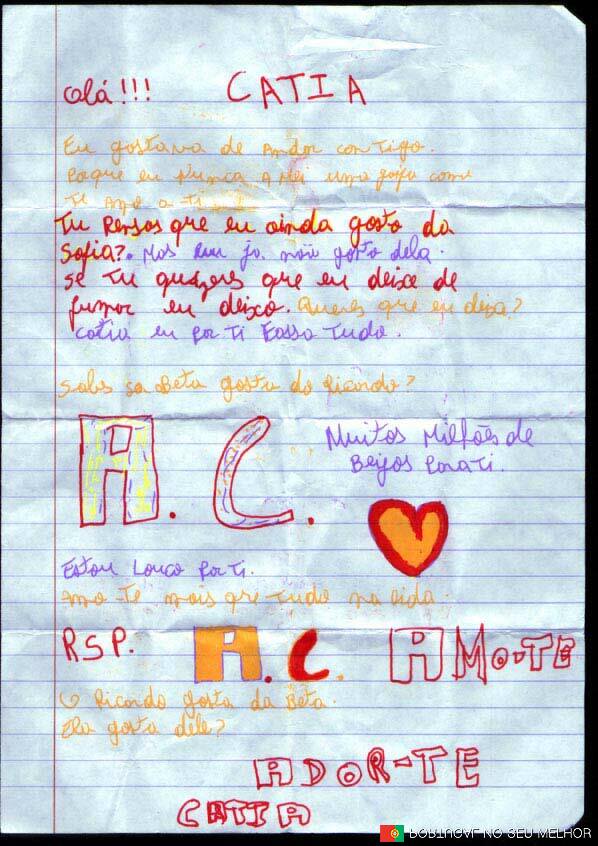 Olá!!! CATIA
Eu gostava de Andar con Tigo.
Porque eu Nunca amei uma gaja como
Ti Amo a Ti
Tu Pensas que eu ainda gosto da
Sofia?. Mas eu ja não gosto dela.
Se Tu quizeres que eu deixe de
fumar eu deixo. Queres que eu deixa?
catia eu por Ti Fasso Tudo.
Sabes sa Beta gosta do Ricardo?
A. C.
Muitos Milhões de
Beijos Para Ti.
Estou Louco Por Ti.
amo-Te mais que Tudo na vida.
RSP. A.C. AMO-TE
O Ricardo gosta da Beta.
Ela gosta dele?
ADOR-TE
CATIA
PORTUGAL NO SEU MELHOR